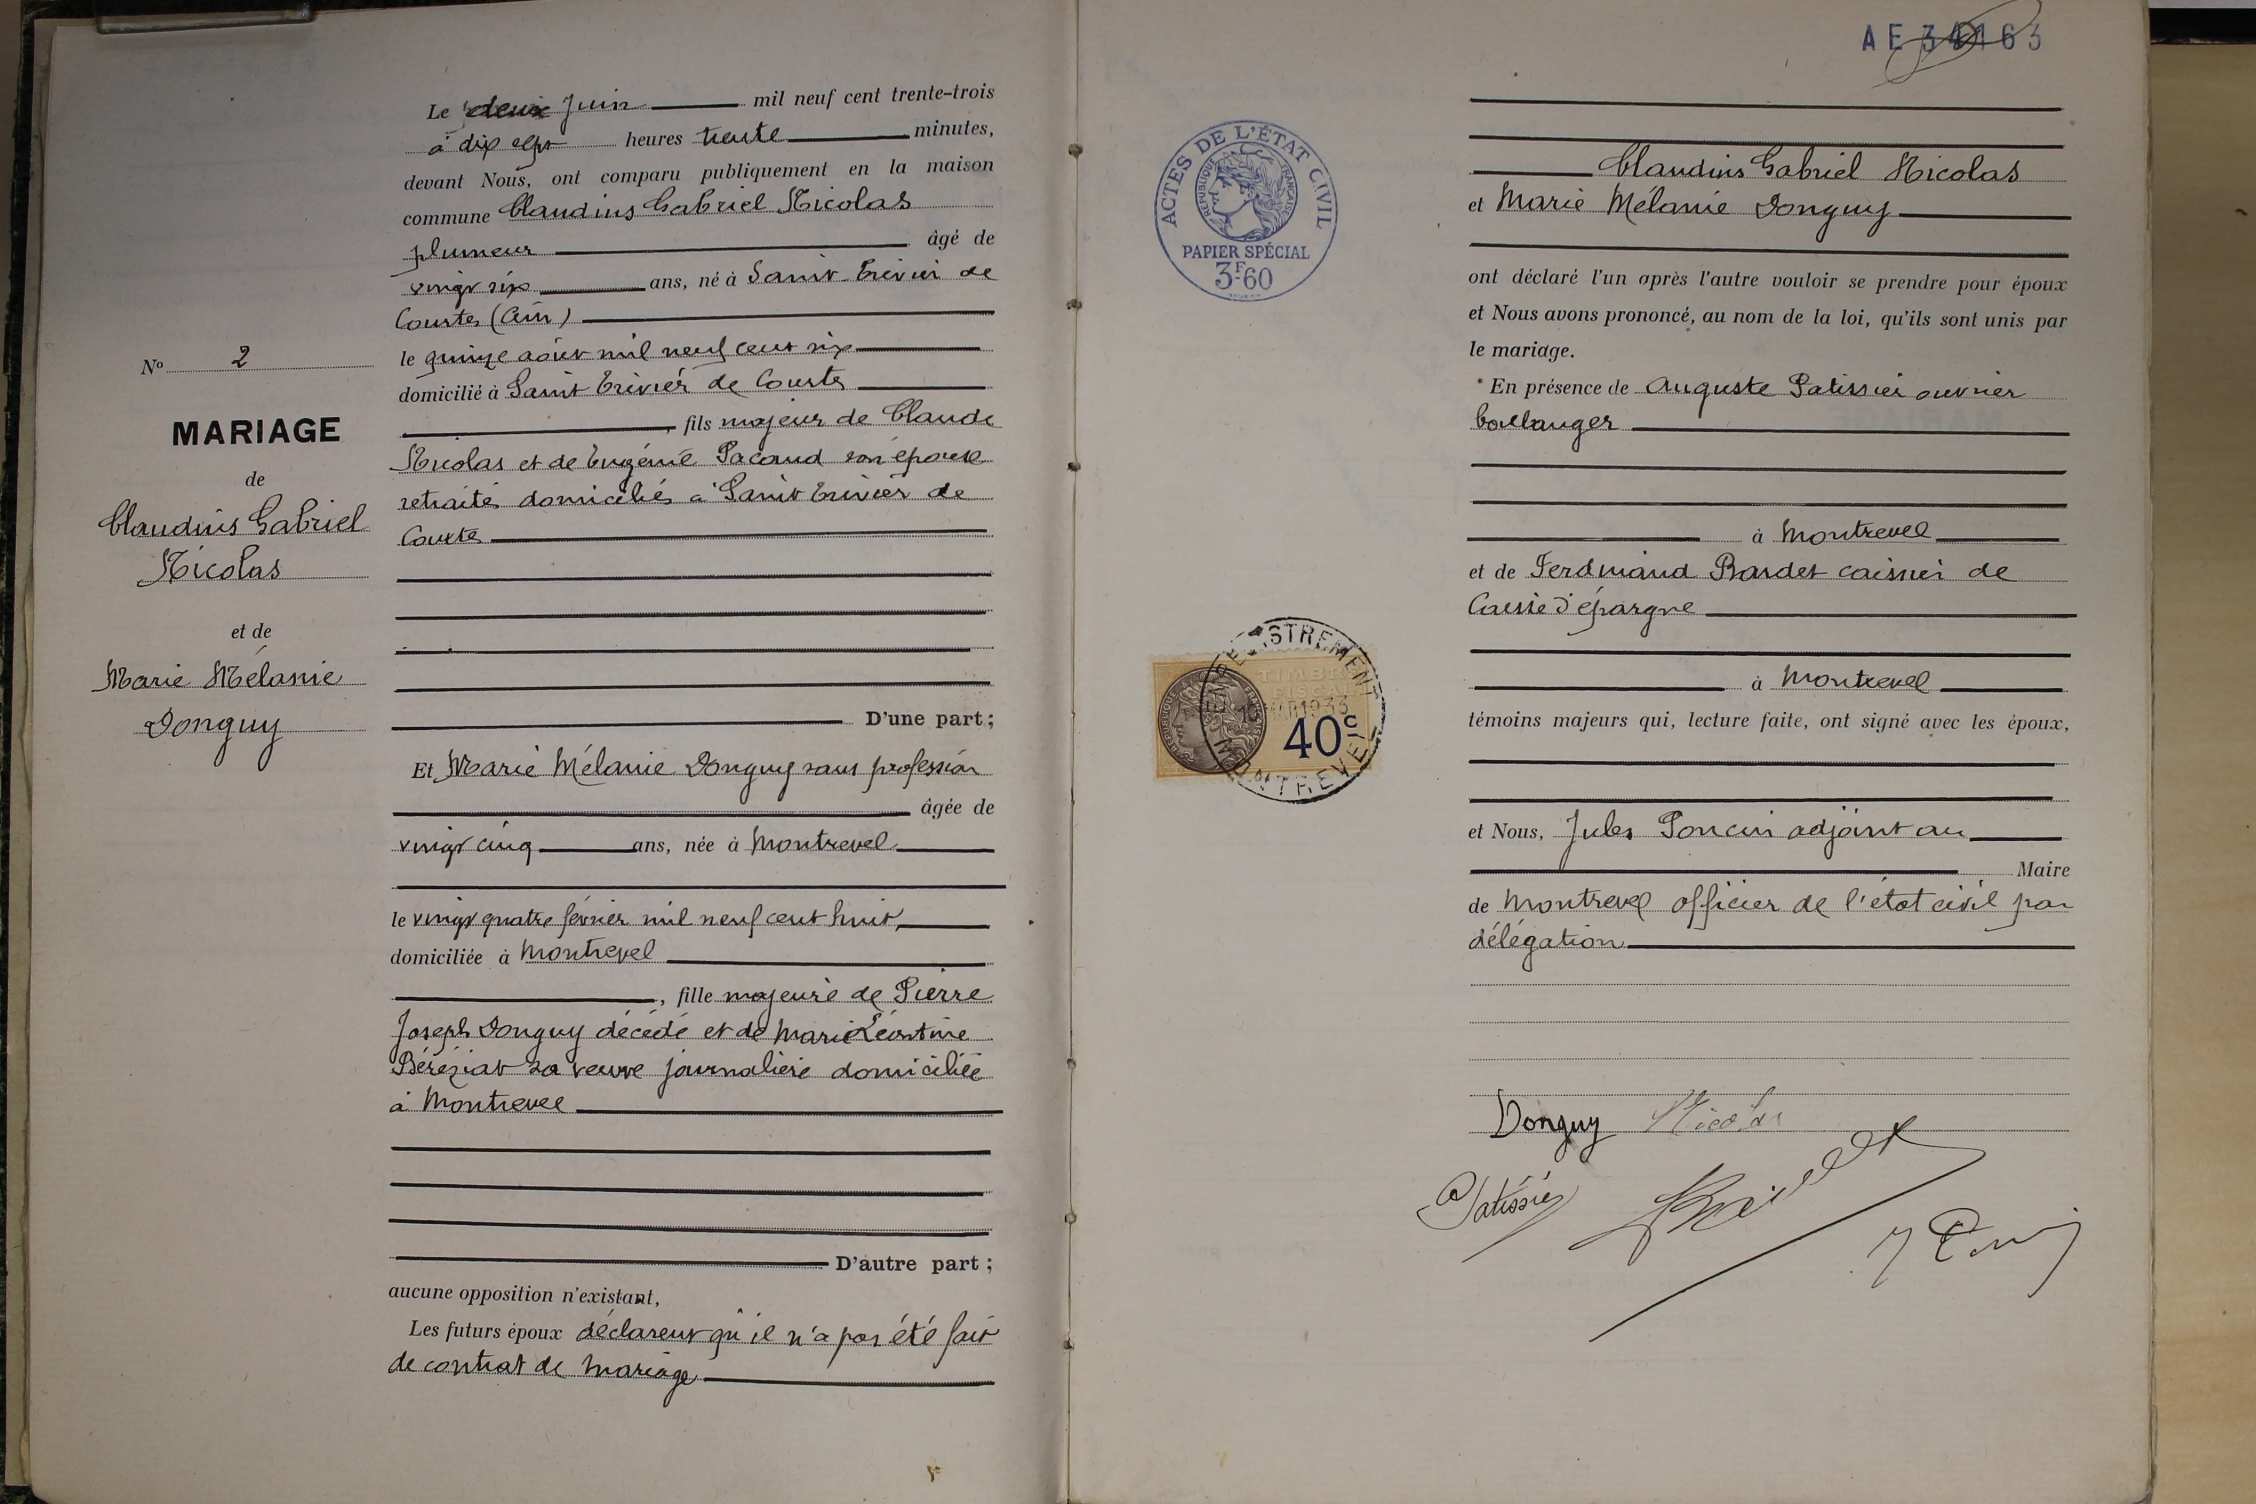 Le deux Juin mil neuf cent trente-trois
à dix sept heures trente minutes,
devant Nous, ont comparu publiquement en la maison
commune Claudius Gabriel Nicolas
plumeur âgé de
vingt six ans, né à Saint Trivier de
Courtes (Ain)
le quinze août mil neuf cent six
domicilié à Saint Trivier de Courtes
, fils majeur de Claude
Nicolas et de Eugénie Pacaud son épouse
retraités domiciliés à Saint Trivier de
Courtes
D'une part ;
Et Marie Mélanie Donguy sans profession
âgée de
vingt cinq ans, née à Montrevel
le vingt quatre février mil neuf cent huit,
domiciliée à Montrevel
, fille majeure de Pierre
Joseph Donguy décédé et de Marie Léontine
Béréziat sa veuve journalière domiciliée
à Montrevel
D'autre part ;
aucune opposition n'existant,
Les futurs époux déclarent qu'il n'a pas été fait
de contrat de mariage
No 2
MARIAGE
de
Claudius Gabriel
Nicolas
et de
Marie Mélanie
Donguy
AE 34163
ACTES DE L'ÉTAT CIVIL
RÉPUBLIQUE FRANÇAISE
PAPIER SPÉCIAL
3F.60
TIMBRE
FISCAL
40c
MONTREVEL
Claudius Gabriel Nicolas
et Marie Mélanie Donguy
ont déclaré l'un après l'autre vouloir se prendre pour époux
et Nous avons prononcé, au nom de la loi, qu'ils sont unis par
le mariage.
En présence de Auguste Patissier ouvrier
boulanger
à Montrevel
et de Ferdinand Bardet caissier de
Caisse d'épargne
à Montrevel
témoins majeurs qui, lecture faite, ont signé avec les époux,
et Nous, Jules Poncin adjoint au
Maire
de Montrevel officier de l'état civil par
délégation
Donguy Nicolas
Patissier